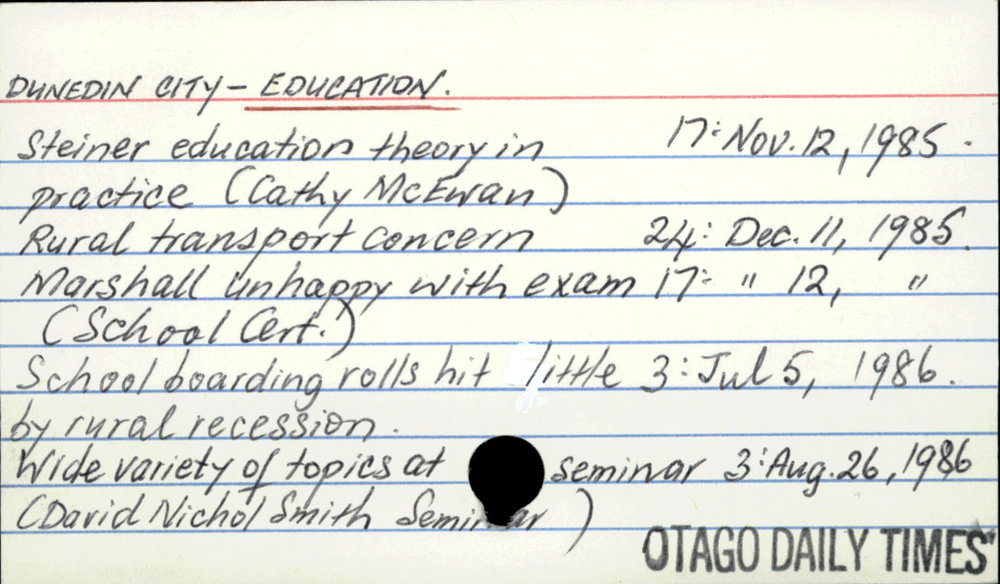 DUNEDIN CITY - EDUCATION.
Steiner education theory in 17: Nov. 12, 1985.
practice (Cathy McEwan)
Rural transport concern 24: Dec. 11, 1985.
Marshall unhappy with exam 17: " 12, "
(School Cert.)
School boarding rolls hit little 3: Jul 5, 1986.
by rural recession.
Wide variety of topics at seminar 3: Aug. 26, 1986
(David Nichol Smith Seminar)
OTAGO DAILY TIMES